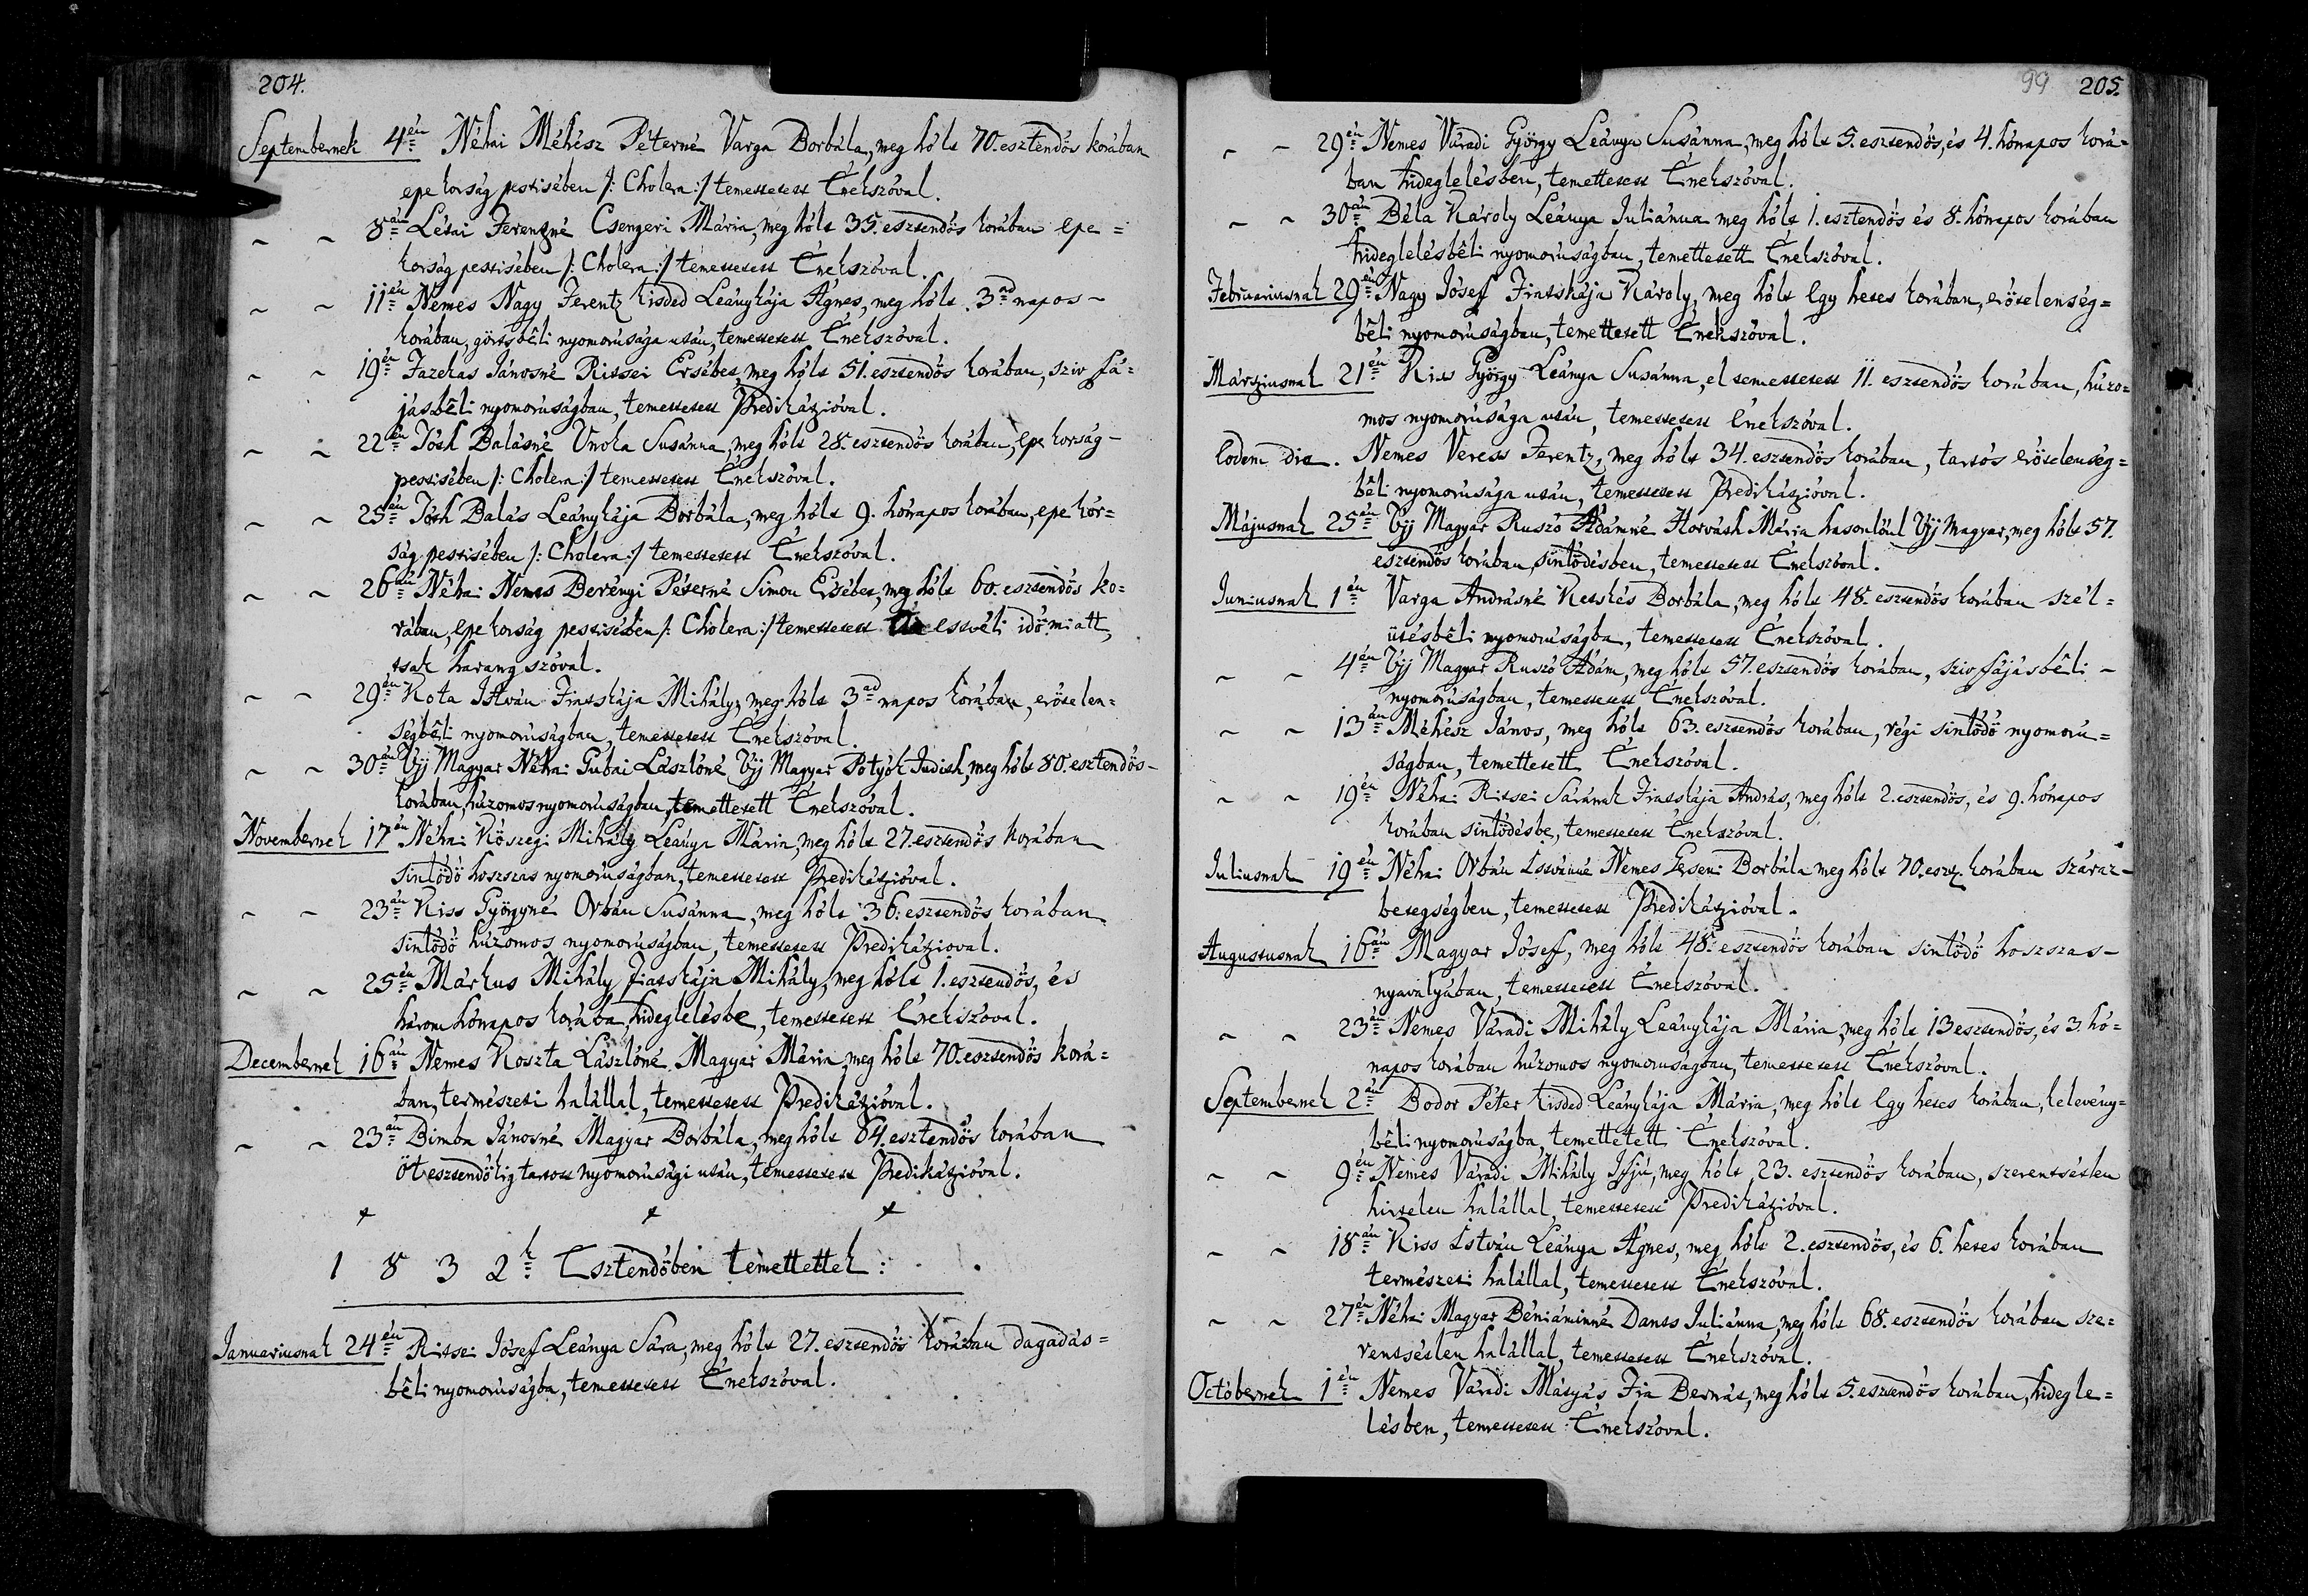 204.
Septembernek 4én Néhai Méhész Péterné Varga Borbála, meg hólt 70. esztendős korában
epe korság pestisében /: Cholera :/ temettetett Énekszóval.
~ ~ 8án Létai Ferentzné Csengeri Mária, meg hólt 35. esztendős korában epe =
korság pestisében /: Cholera :/ temettetett Énekszóval.
~ ~ 11én Nemes Nagy Ferentz kisded Leánykája Ágnes, meg hólt 3ad napos -
korában, görtsbéli nyomorúsága után, temettetett Énekszóval.
~ ~ 19én Fazekas Jánosné Ritsei Ersébet, meg hólt 51. esztendős korában, sziv fá=
jásbéli nyomorúságban, temettetett Prédikátzióval.
~ ~ 22én Tóth Balásné Unoka Susánna, meg hólt 28. esztendős korában, epe korság -
pestisében /: Cholera :/ temettetett Énekszóval.
~ ~ 25én Tóth Balás Leánykája Borbála, meg hólt 9. hónapos korában, epe kór=
ság pestisében /: Cholera :/ temettetett Énekszóval.
~ ~ 26án Néhai Nemes Berényi Péterné Simon Ersébet, meg hólt 60. esztendős ko=
rában, epe korság pestisében /: Cholera :/ temettetett estvéli idő miatt,
tsak harang szóval.
~ ~ 29én Kota István Fiatskája Mihály, meg hólt 3ad napos korában, erőtelen=
ségbéli nyomorúságban, temettetett Énekszóval.
~ ~ 30án Ujj Magyar Néhai Gubai Lászlóné Ujj Magyar Potyók Judith, meg hólt 80. esztendős -
korában, húzomos nyomorúságban, temettetett Énekszóval.
Novembernek 17én Néhai Kőszegi Mihály Leánya Mária, meg hólt 27. esztendős korában
sintődő hoszszas nyomorúságban, temettetett Prédikátzióval.
~ ~ 23án Kiss Györgyné Orbán Susánna, meg hólt 36. esztendős korában
sintődő húzomos nyomorúságban, temettetett Prédikátzioval.
~ ~ 25én Márkus Mihály Fiatskája Mihály, meg hólt 1. esztendős, és
három hónapos korába, hideglelésbe, temettetett Énekszóval.
Decembernek 16án Nemes Koszta Lászlóné Magyar Mária, meg hólt 70. esztendős korá=
ban, természeti halállal, temettetett Prédikátzióval.
~ ~ 23án Bimba Jánosné Magyar Borbála, meg hólt 64. esztendős korában
öt esztendőkig tartott nyomorúsági után, temettetett Prédikátzióval.
1 8 3 2k Esztendőben temettettek :
Januariusnak 24én Ritsei Jósef Leánya Sára, meg hólt 27. esztendős korában dagadás=
béli nyomorúságba, temettetett Énekszóval.
99 205.
~ ~ 29én Nemes Váradi György Leánya Susánna, meg hólt 5. esztendős, és 4. hónapos korá=
ban hideglelésben, temettetett Énekszóval.
~ ~ 30án Béla Károly Leánya Juliánna meg hólt 1. esztendős és 8. hónapos korában
hideglelésbéli nyomorúságban, temettetett Énekszóval.
Februariusnak 29én Nagy Jósef Fiatskája Károly, meg hólt egy hetes korában, erőtelenség=
béli nyomorúságban, temettetett Énekszóval.
Mártziusnak 21én Kiss György Leánya Susánna, el temettetett 11. esztendős korában, húzo=
mos nyomorúsága után, temettetett Énekszóval.
Eodem die. Nemes Veress Ferentz, meg hólt 34. esztendős korában, tartós erőtelenség=
béli nyomorúsága után, temettetett Prédikátzióval.
Májusnak 25én Ujj Magyar Ruszó Ádámné Horváth Mária hasonlóul Ujj Magyar, meg hólt 57.
esztendős korában, sintődésben, temettetett Énekszóval.
Juniusnak 1én Varga Andrásné Ketskés Borbála, meg hólt 48. esztendős korában szél=
ütésbéli nyomorúságba, temettetett Énekszóval.
~ ~ 4én Ujj Magyar Ruszó Ádám, meg hólt 57. esztendős korában, sziv fájásbéli -
nyomorúságban, temettetett Énekszóval.
~ ~ 13án Méhész János, meg hólt 63. esztendős korában, régi sintődő nyomorú=
ságban, temettetett Énekszóval.
~ ~ 19én Néhai Ritsei Sárának Fiatskája András, meg hólt 2. esztendős, és 9. hónapos
korában sintődésbe, temettetett Énekszóval.
Juliusnak 19én Néhai Orbán Istvánné Nemes Getsei Borbála meg hólt 70. eszt. korában száraz-
betegségben, temettetett Prédikátzióval.
Augustusnak 16án Magyar Jósef, meg hólt 48. esztendős korában sintődő hoszszas-
nyavalyában, temettetett Énekszóval.
~ ~ 23án Nemes Váradi Mihály Leánykája Mária, meg hólt 13 esztendős, és 3. hó=
napos korában húzomos nyomorúságban, temettetett Énekszóval.
Septembernek 2án Bodor Péter kisded Leánykája Mária, meg hólt egy hetes korában, kelevény=
béli nyomorúságba, temettetett Énekszóval.
~ ~ 9én Nemes Váradi Mihály Ifjú, meg hólt 23. esztendős korában, szerentsétlen
hirtelen halállal, temettetett Prédikátzióval.
~ ~ 18án Kiss István Leánya Ágnes, meg hólt 2. esztendős, és 6. hetes korában
természeti halállal, temettetett Énekszóval.
~ ~ 27én Néhai Magyar Béniáminné Dants Juliánna, meg hólt 68. esztendős korában sze=
rentsétlen halállal, temettetett Énekszóval.
Octóbernek 1én Nemes Váradi Mátyás Fia Bernát, meg hólt 5. esztendős korában, hidegle=
lésben, temettetett Énekszóval.